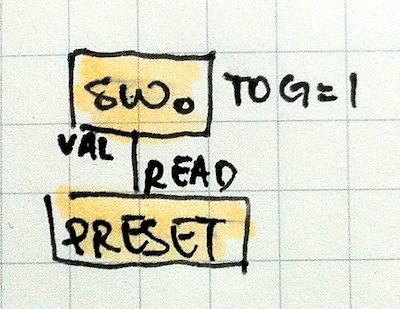 SW. TOG=1
VAL
READ
PRESET